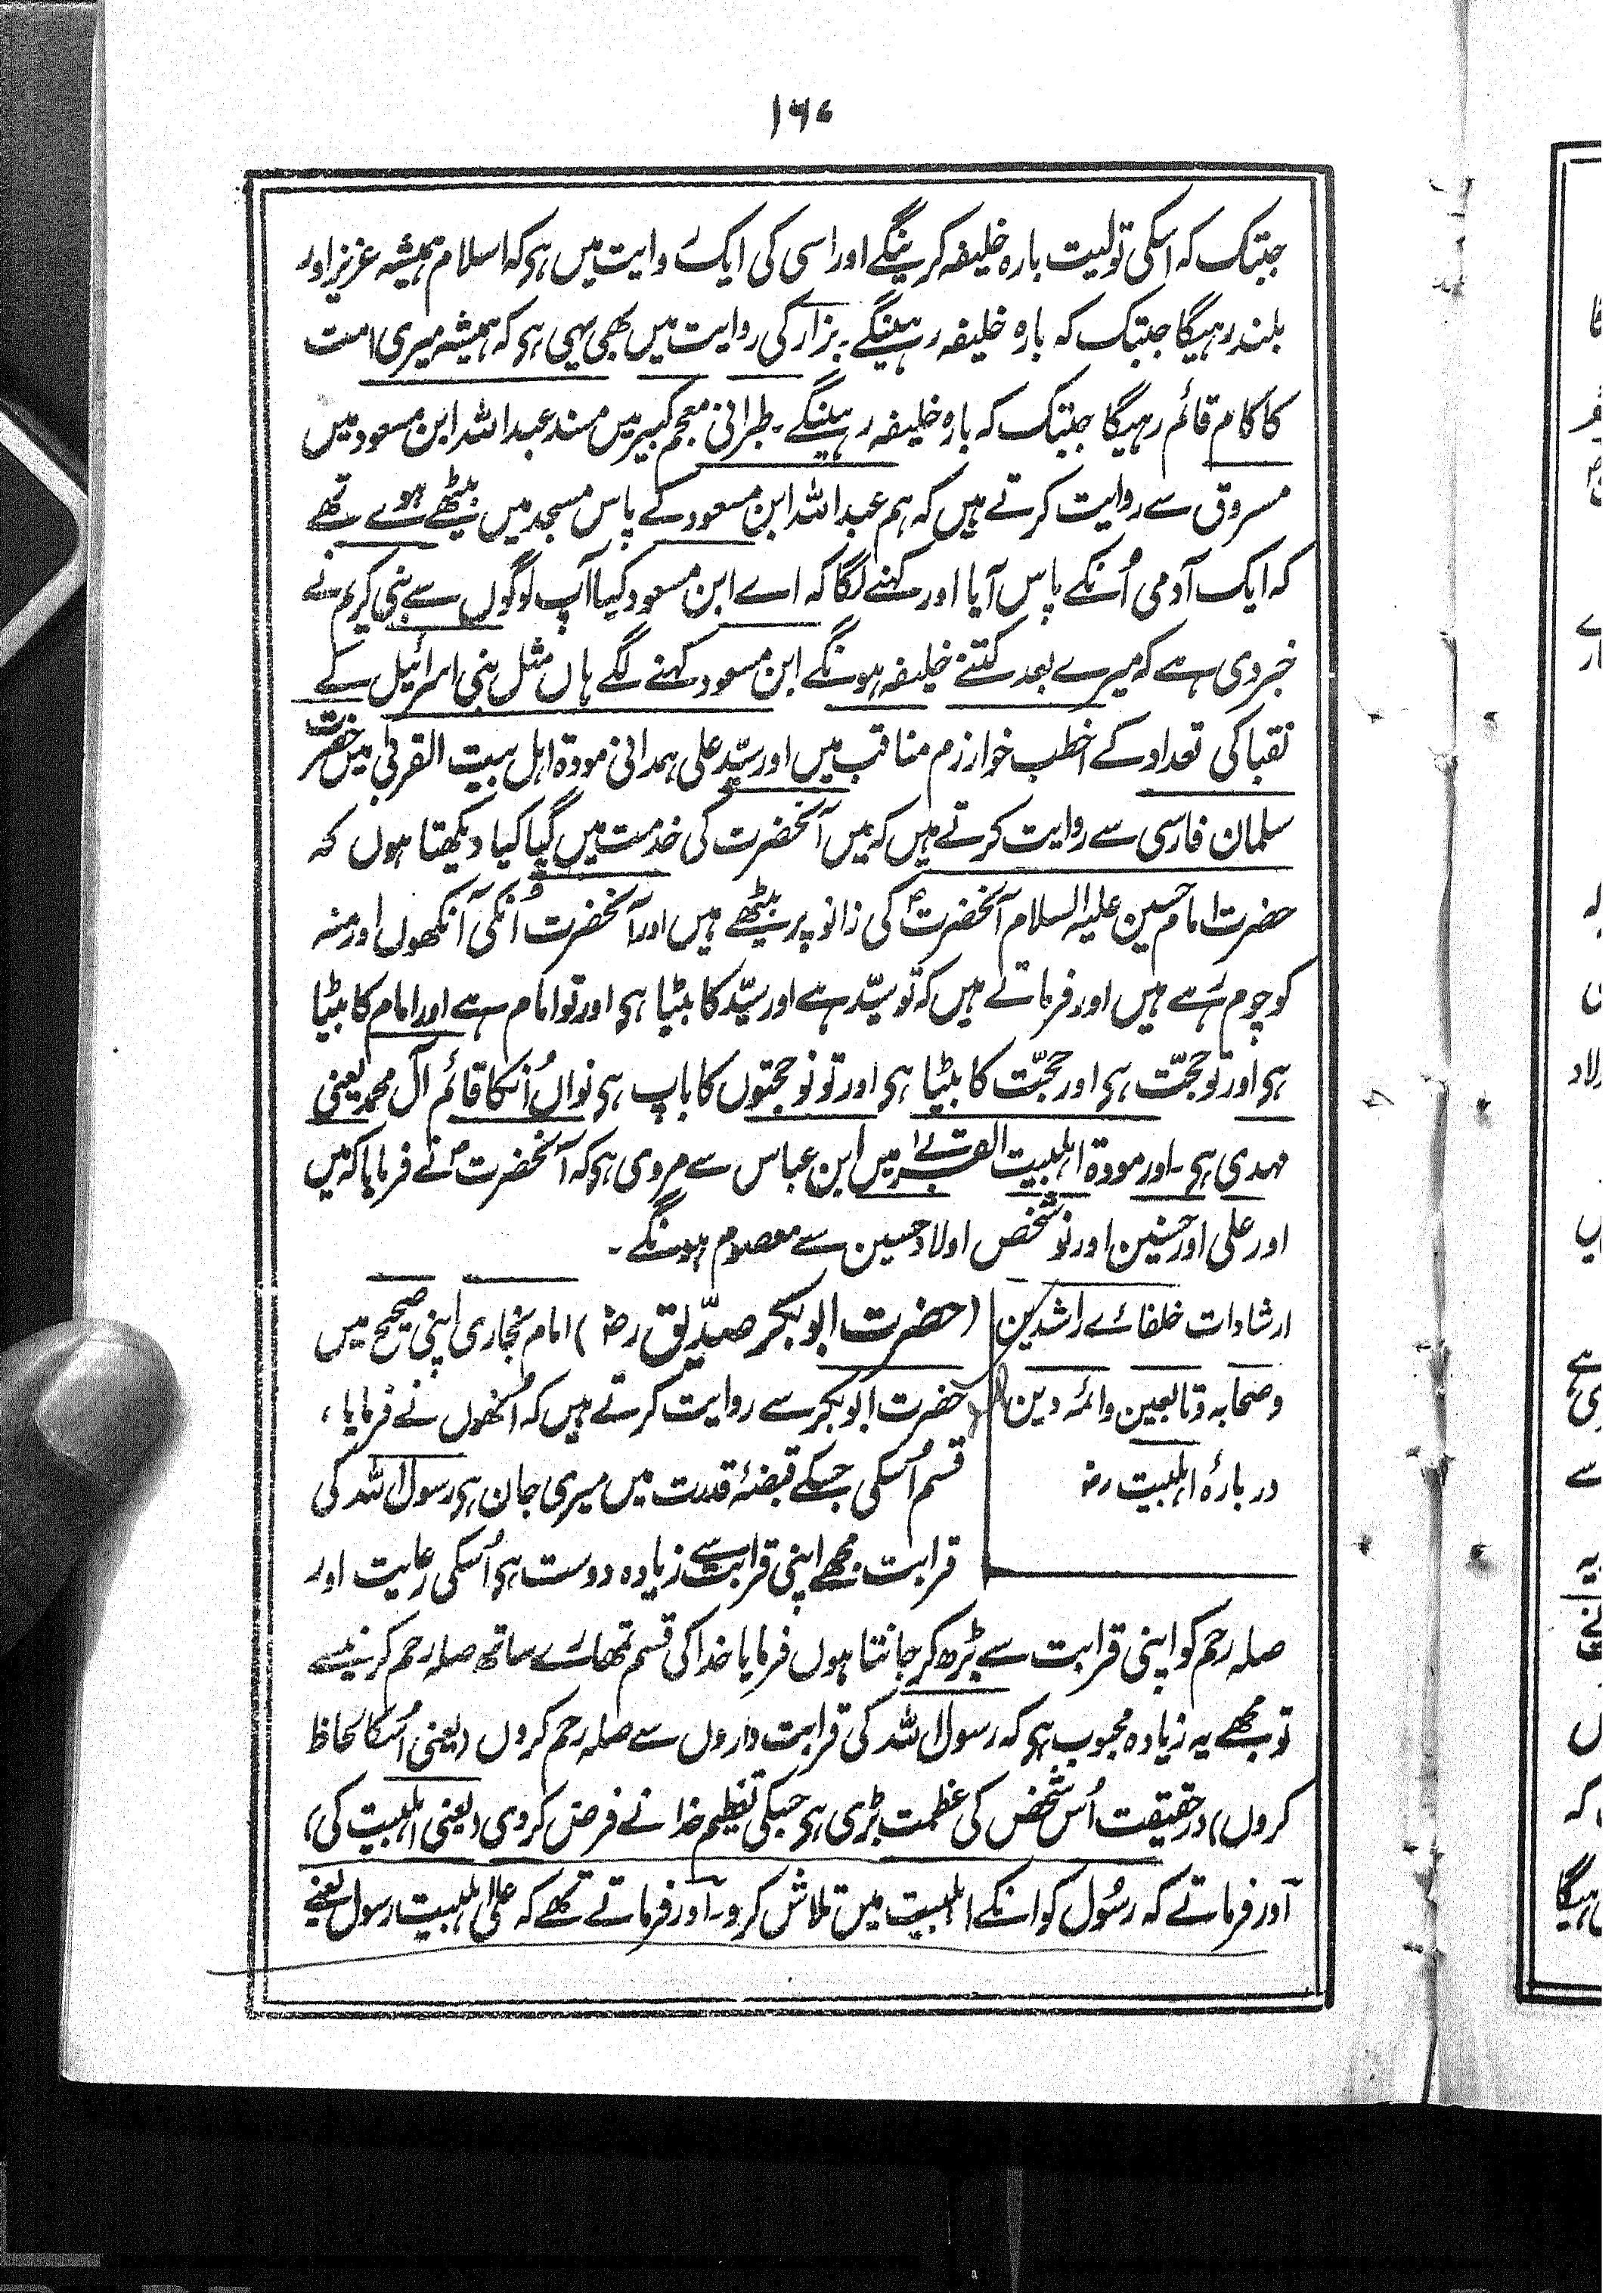 ۱۶۰
جبتک کہ اسکی تولیت بارہ خلیفہ کرینگے اور اسی کی ایک روایت میں ہو کہ اسلام ہمیشہ عزیز اور
بلند رہیگا جبتک کہ بارہ خلیفہ رہینگے۔ بزار کی روایت میں بھی یہی ہو کہ ہمیشہ میری امت
کا کام قائم رہیگا جبتک کہ بارہ خلیفہ رہینگے۔ طبرانی معجم کبیر میں مسند عبد اللہ ابن مسعود میں
مسروق سے روایت کرتے ہیں کہ ہم عبد اللہ ابن مسعود کے پاس مسجد میں بیٹھے ہوے تھے
کہ ایک آدمی اُنکے پاس آیا اور کہنے لگا کہ اے ابن مسعود کیا آپ لوگوں سے نبی کریم نے
خبر دی ہے کہ میرے بعد کتنے خلیفہ ہونگے ابن مسعود کہنے لگے ہاں مثل بنی اسرائیل کے
نقبا کی تعداد کے اخطب خوارزم مناقب میں اور سیّد علی ہمدانی مودۃ اہل بیت القربیٰ میں حضرت
سلمان فارسی سے روایت کرتے ہیں کہ میں آنحضرت کی خدمت میں گیا کیا دیکھتا ہوں کہ
حضرت امام حسین علیہ السلام آنحضرتؐ کی زانو پر بیٹھے ہیں اور آنحضرت اُنکی آنکھوں اور منہ
کو چوم رہے ہیں اور فرماتے ہیں کہ تو سیّد ہے اور سیّد کا بیٹا ہو اور تو امام ہے اور امام کا بیٹا
ہو اور تو حجّت ہو اور حجّت کا بیٹا ہو اور تو نو حجتوں کا باپ ہو نواں اُنکا قائم آل محمد یعنی
مہدی ہو۔ اور مودۃ اہلبیت القربےٰ میں ابن عباس سے مروی ہو کہ آنحضرتؐ نے فرمایا کہ میں
اور علی اور حسنین اور نو شخص اولاد حسین سے معصوم ہونگے۔
ارشادات خلفائے راشدین
وصحابہ وتابعین وائمہ دین
دربارۂ اہلبیت رضہ
(حضرت ابو بکر صدّیق رضہ) امام بخاری اپنی صحیح میں
حضرت ابو بکر سے روایت کرتے ہیں کہ اُنھوں نے فرمایا،
قسم اُسکی جسکے قبضۂ قدرت میں میری جان ہو رسول اللہ کی
قرابت مجھے اپنی قرابت سے زیادہ دوست ہو اُسکی رعایت اور
صلہ رحم کو اپنی قرابت سے بڑھ کر جانتا ہوں فرمایا خدا کی قسم تمھارے ساتھ صلہ رحم کرنیسے
تو مجھے یہ زیادہ محبوب ہو کہ رسول اللہ کی قرابت داروں سے صلہ رحم کروں (یعنی اُسکا لحاظ
کروں) درحقیقت اُس شخص کی عظمت بڑی ہو جسکی تعظیم خدا نے فرض کر دی (یعنی اہلبیت کی)
اور فرماتے کہ رسُول کو انکے اہلبیت میں تلاش کرو۔ اور فرماتے تھے کہ علی اہلبیت رسول یعنے